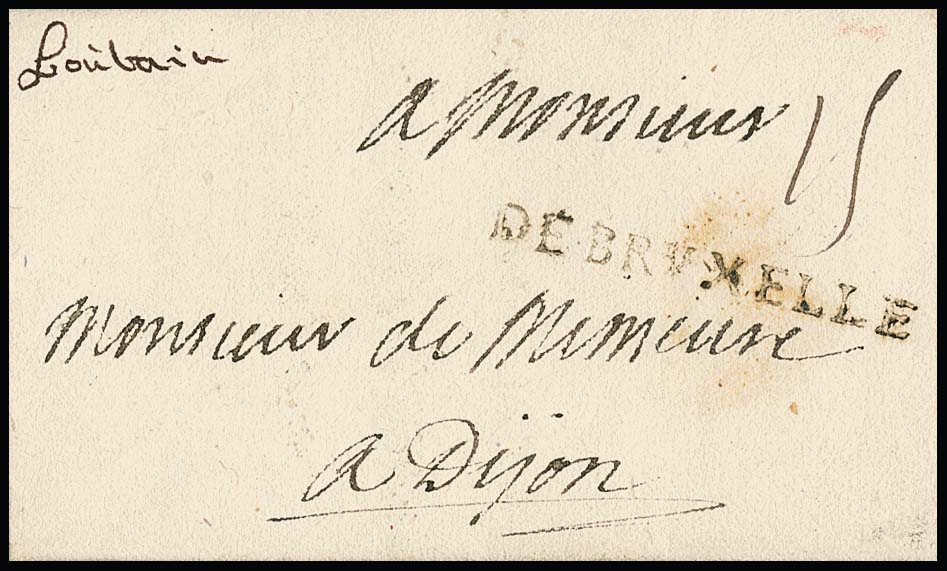 Louvain
a Monsieur 15
DE BRVXELLE
Monsieur de Mimeure
a Dijon